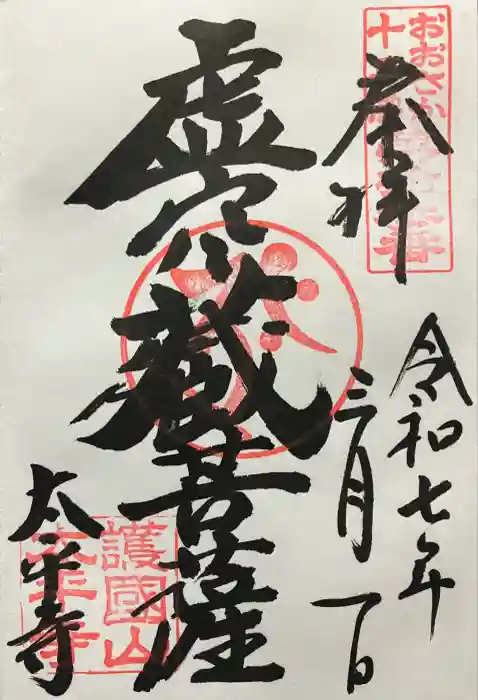 奉拝
令和七年
三月一日
虚空蔵菩薩
太平寺
おおさか
十三佛
護國山
太平寺